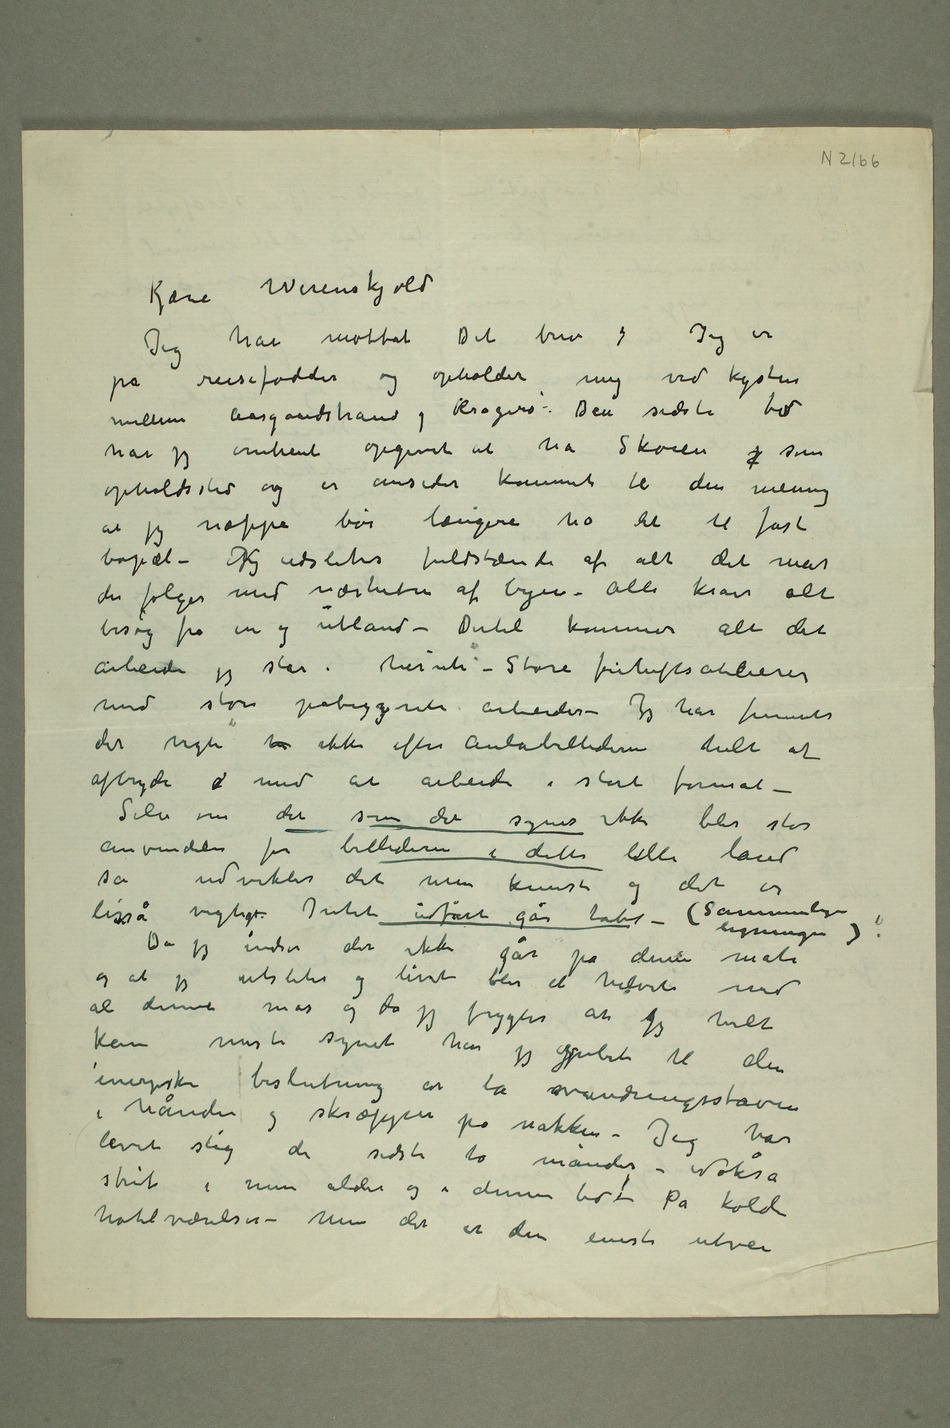 N 2166
Kjære Werenskjold
Jeg har mottat Det brev og Jeg er
på reisefødder og opholder mig ved kysten
mellem Aasgaardstrand og Kragerø. Den sidste tid
har jg omtrent opgivet at ha Skøien som
opholdssted og er omsider kommet til den mening
at jg næppe bør længere ha det til fast
bopæl – Jeg udslites fuldstændi af alt det mas
der følger med nærheten af byen – alle krav alt
besøg fra in og utland – Dertil kommer alt det
arbeide jg står i herute – Store friluftsatelierer
med store påbegynte arbeider – Jg har funnet
det rigti ikke efter Aulabillederne helt at
afbryde med at arbeide i stort format –
Selv om det som det synes ikke blir stor
anvendelse for billederne i dette lille land
så udvikler det min kunst og det er
lisså vigtigt. Intet udført går tabt – (Sammenlig-
ligningen)!
Da jg indser det ikke går på denne måte
og at jg utslites og livet blir et helvete med
al denne mas og da jg frygter at jg helt
kan miste synet har jg grebet til den
energiske beslutning at ta vandringsstaven
i hånden og skræppen på nakken – Jeg har
levet slig de sidste to måneder – Nokså
stridt i min alder og i denne tid – På kolde
hotelværelser – men det er den eneste utvei